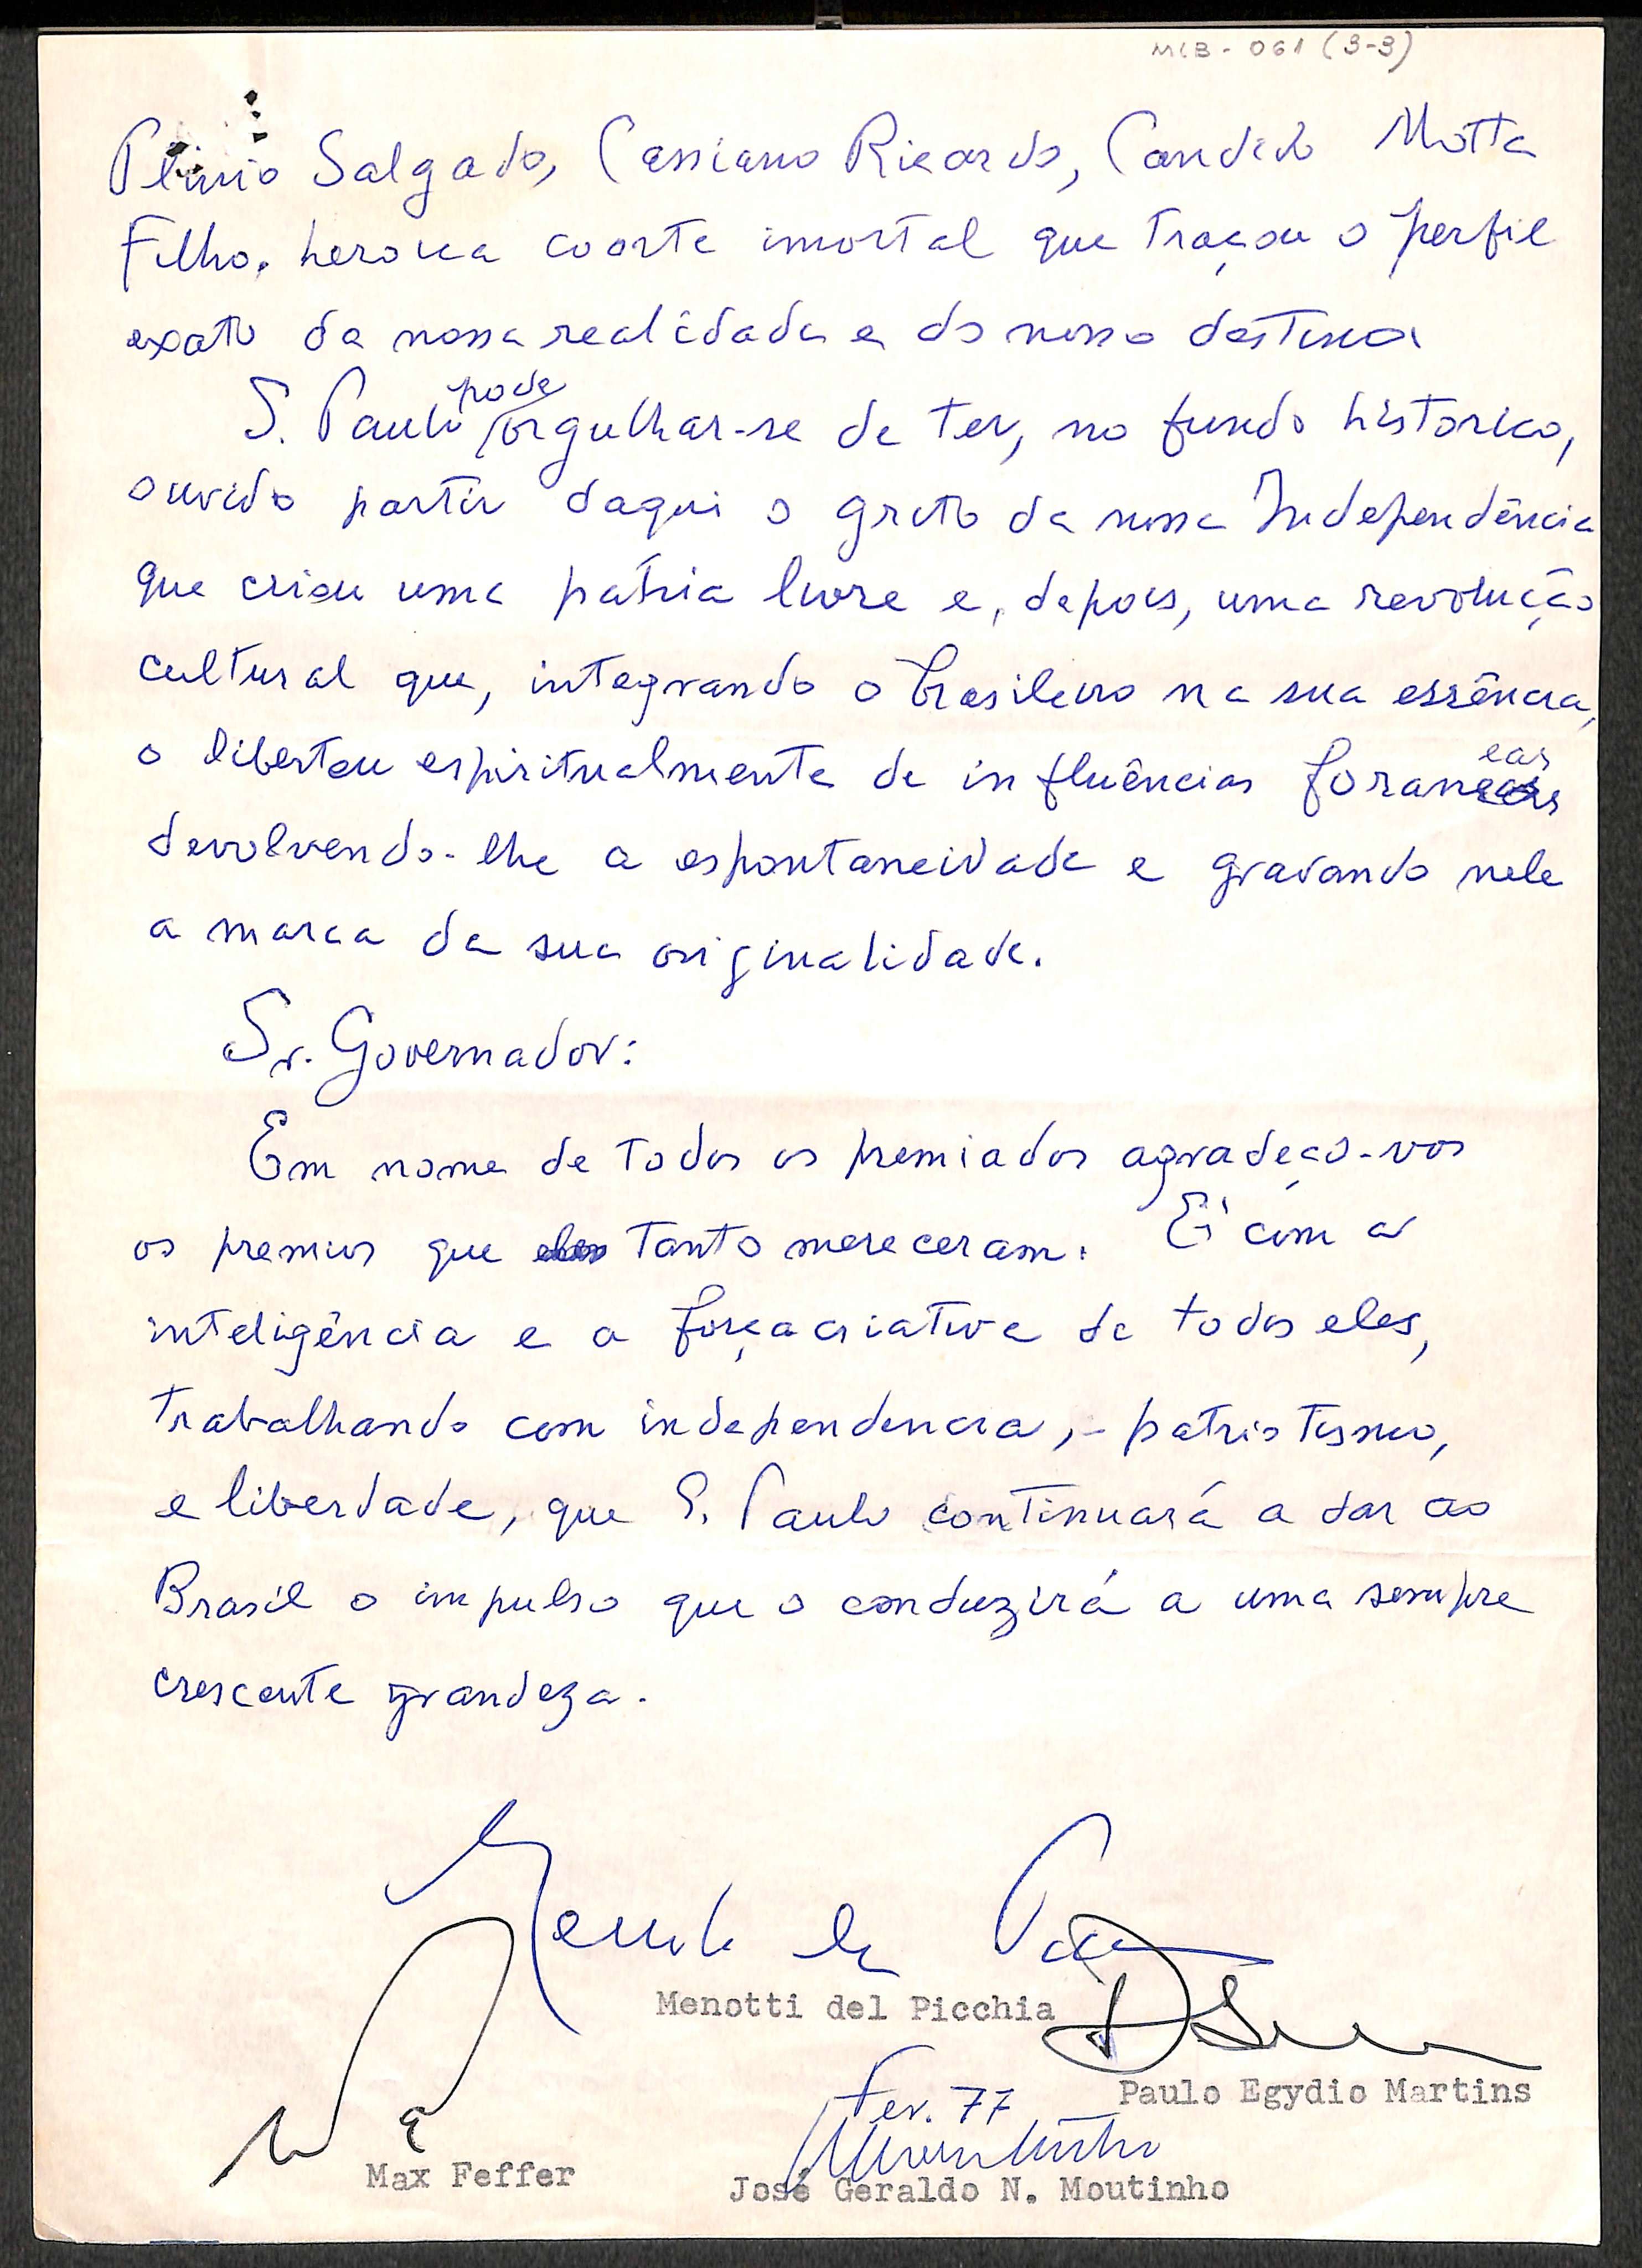 MLB - 061 (3-3)
Plinio Salgado, Cassiano Ricardo, Candido Motta
Filho. heroica coorte imortal que traçou o perfil
exato da nossa realidade e do nosso destino.
pode
S. Paulo / orgulhar-se de ter, no fundo historico,
ouvido partir daqui o grito da nossa Independência
que criou uma pátria livre e, depois, uma revolução
cultural que, integrando o brasileiro na sua essência,
eas
o libertou espiritualmente de influências foran
devolvendo-lhe a espontaneidade e gravando nele
a marca da sua originalidade.
Sr. Governador:
Em nome de todos os premiados agradeço-vos
os premios que tanto mereceram. É com a
inteligência e a força criativa de todos eles,
trabalhando com independencia, - patriotismo,
e liberdade, que S. Paulo continuará a dar ao
Brasil o impulso que o conduzirá a uma sempre
crescente grandeza.
Menotti del Picchia
Menotti del Picchia
Paulo Egydio Martins
Fev. 77
Max Feffer
José Geraldo N. Moutinho